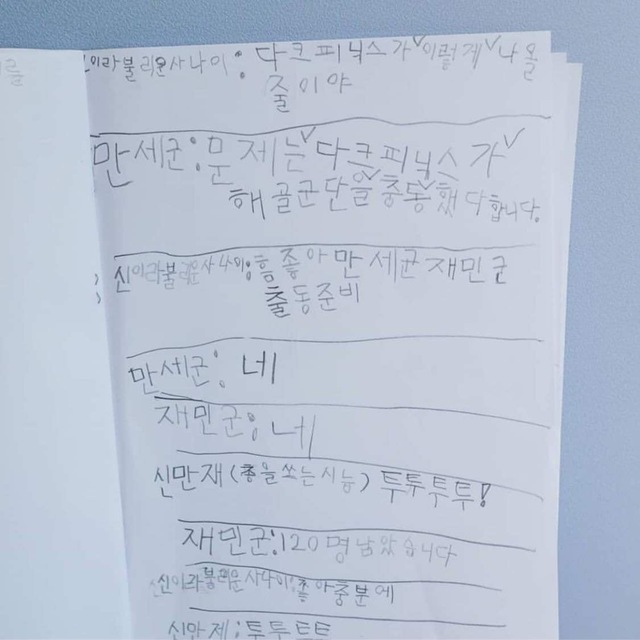 이라불리운사나이: 다크피닉스가 이렇게 나올
줄이야
만세군: 문제는 다크피닉스가
해골군단을 충동했다합니다.
신이라불리운사나이: 흠 좋아 만세군 재민군
출동준비
만세군: 네
재민군: 네
신만재 (총을 쏘는 시늉) 투투투투!
재민군: 120명 남았습니다
신이라불리운사나이: 좋아 충분해
신만제: 투투투투